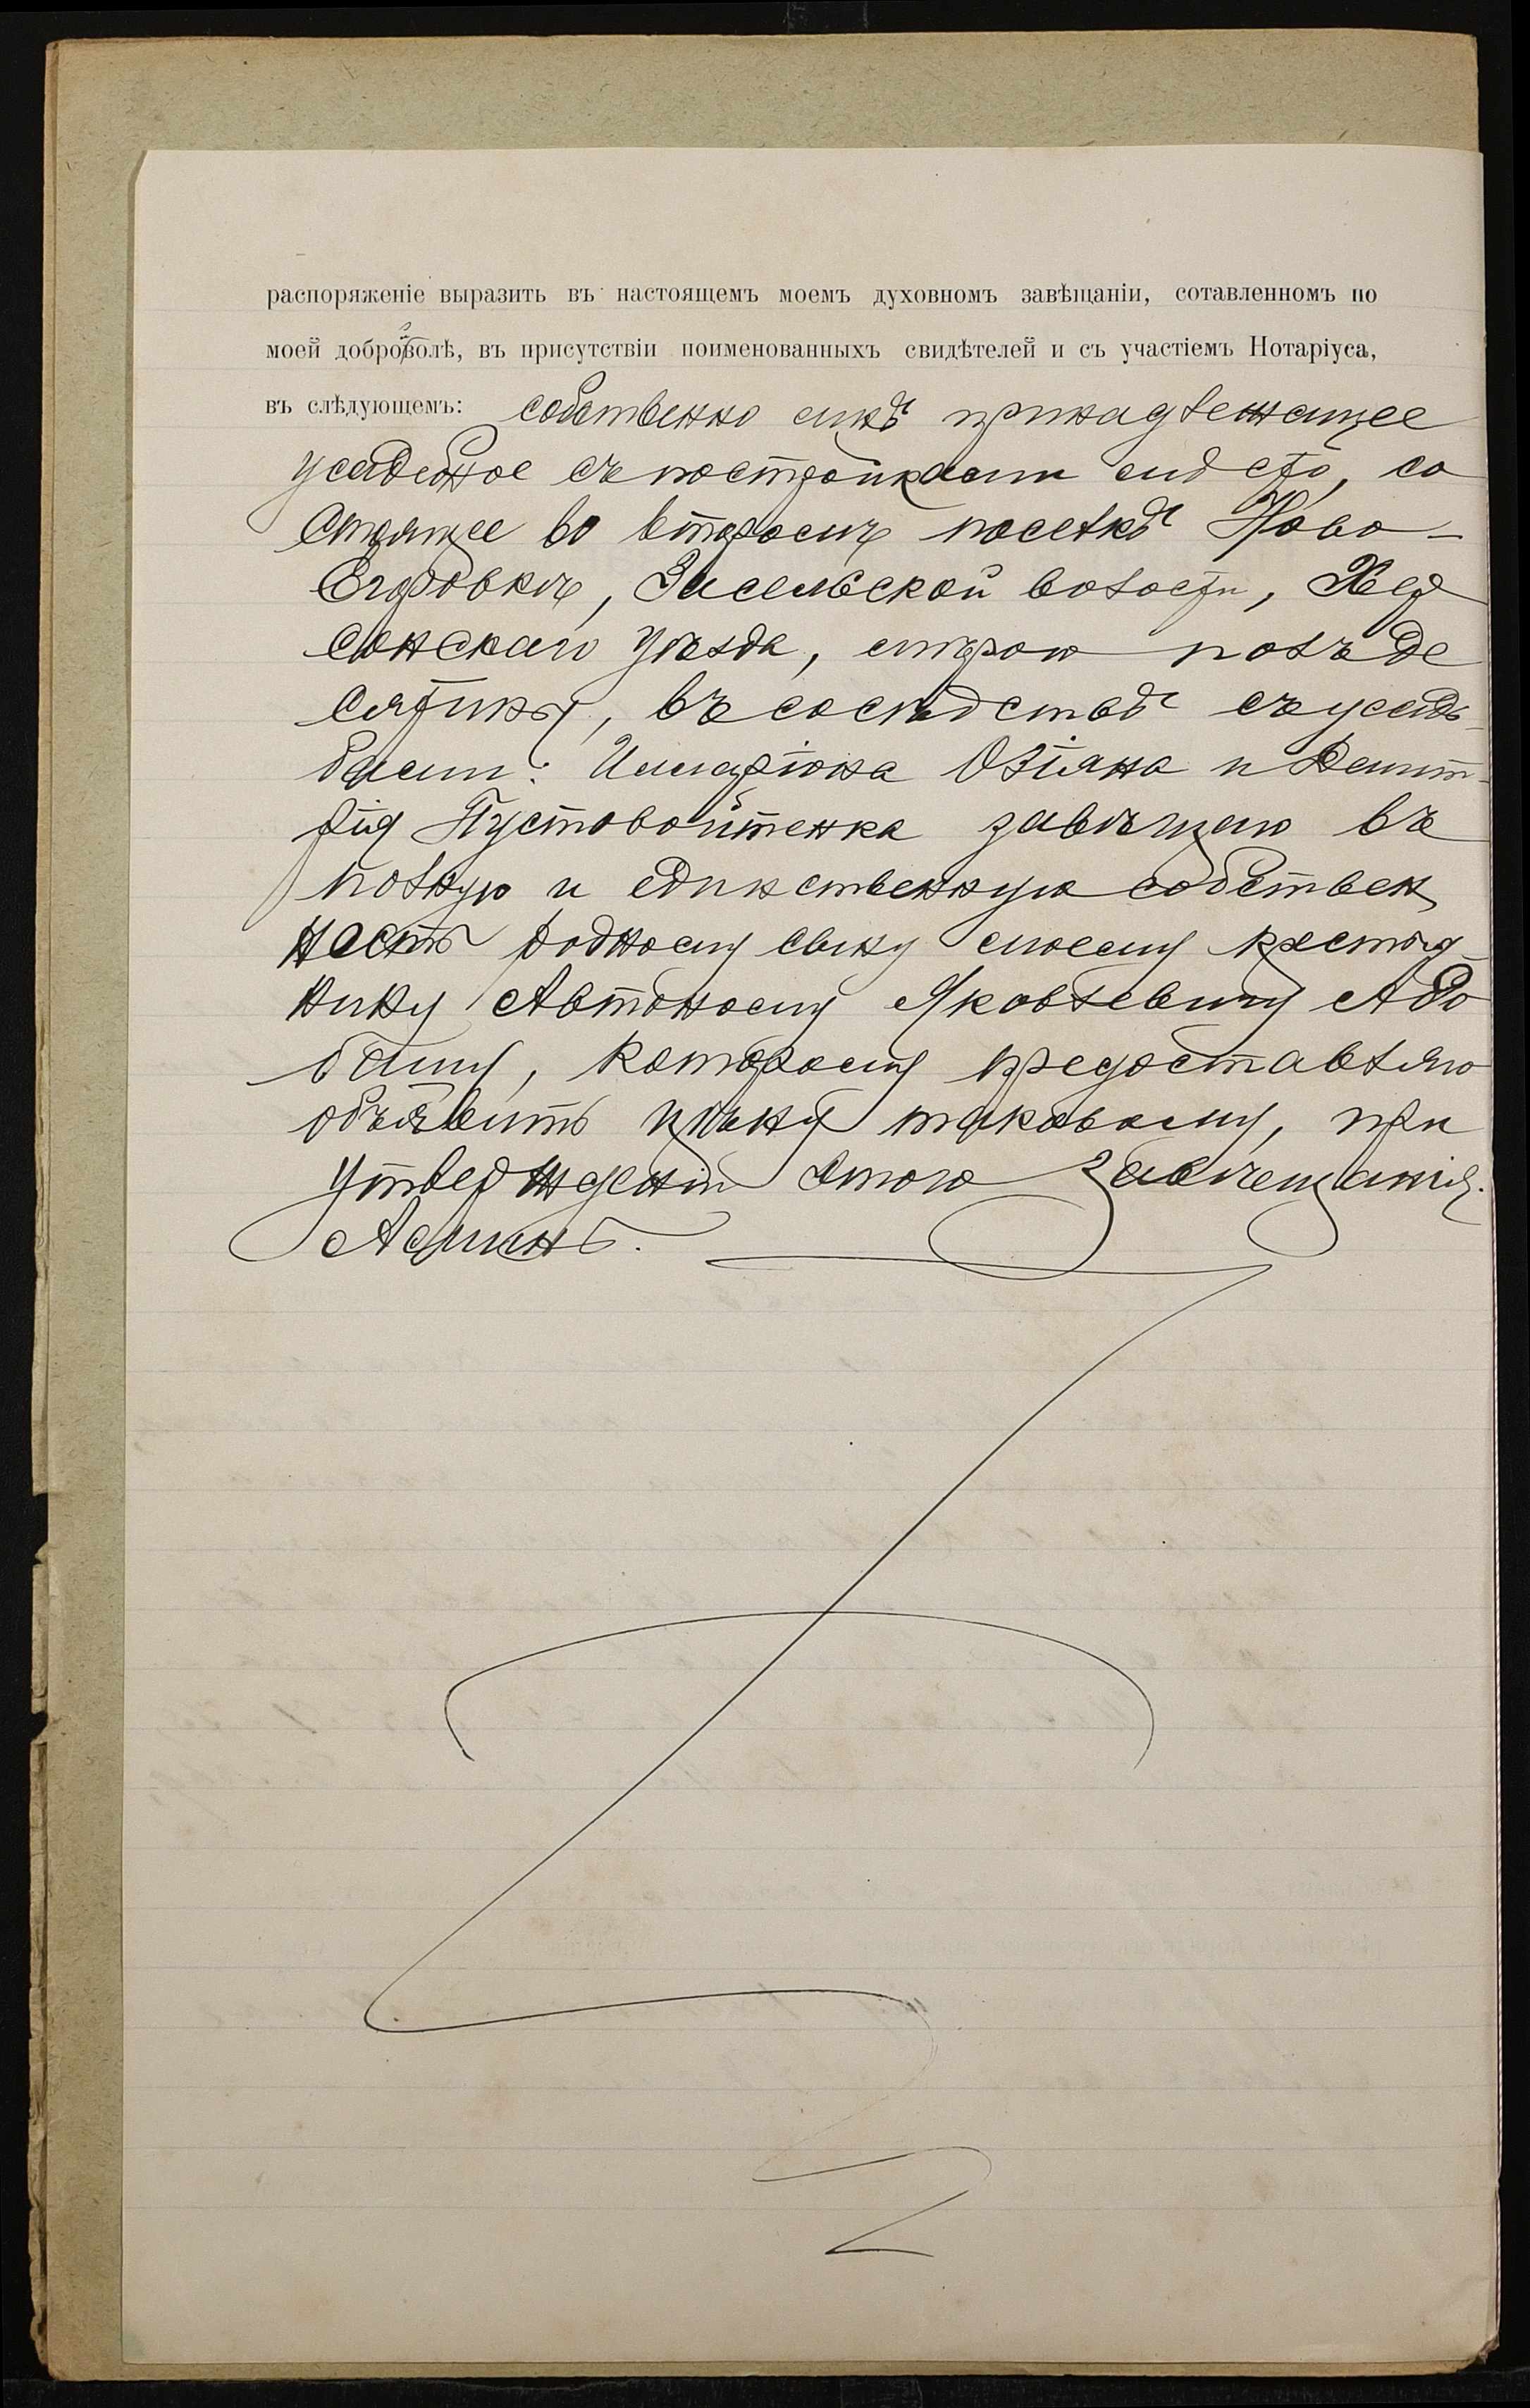 распоряженіе выразить въ настоящемъ моемъ духовномъ завѣщаніи, сотавленномъ по
моей доброволѣ, въ присутствіи поименованныхъ свидѣтелей и съ участіемъ Нотаріуса,
въ слѣдующемъ: собственно мнѣ принадлежащее
усадебное съ постройками мѣсто, со
стоящее во второмъ поселкѣ Ново-
Егоровкѣ, Засельской волости, Хер
сонскаго уѣзда, мѣрою полъ де
сятины, въ сосѣдствѣ съ усадь-
бами: Илларіона Озіяна и Димит-
рія Пустовойтенка завѣщаю въ
полную и единственную собствен
ность родному сыну моему крестья-
нину Автоному Яковлевичу
которому предоставляю
объявить цѣну таковому, при
утвержденіи этого завѣщанія.
Аминь.